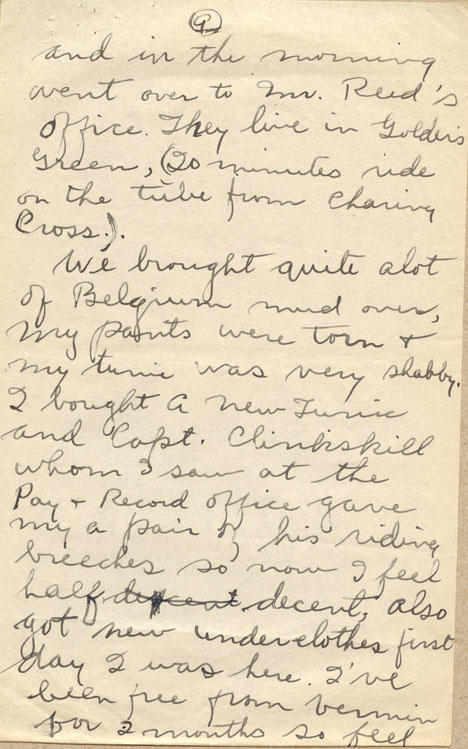 9
and in the morning
went over to Mr. Reed's
office. They live in Golders
Green, (20 minutes ride
on the tube from Charing
Cross.).
We brought quite alot
of Belgium mud over,
my pants were torn +
my tunic was very shabby.
I bought a new Tunic
and Capt. Clinkskill
whom I saw at the
Pay + Record office gave
my a pair of his riding
breeches so now I feel
half decent. decent, also
got new underclothes first
day I was here. I've
been free from vermin
for 2 months so feel